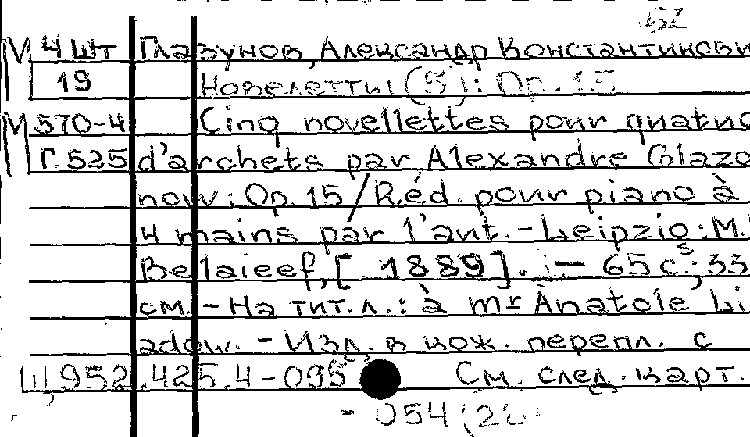 М 4 шт Глазунов, Александр Константинови
19 Новелетты (5): Op. 15
М 570-4 Cinq novellettes pour quatuo
Г 525 d'archets par Alexandre Glazo
now: Op. 15 / Réd. pour piano à
4 mains par l'aut. - Leipzig: M.
Belaieef, [1889]. - 65 с; 33
см. - На тит. л.: à mr Anatole Li
adow. - Изд. в кож. перепл. с
Щ 952.425.4-095 См. след. карт.